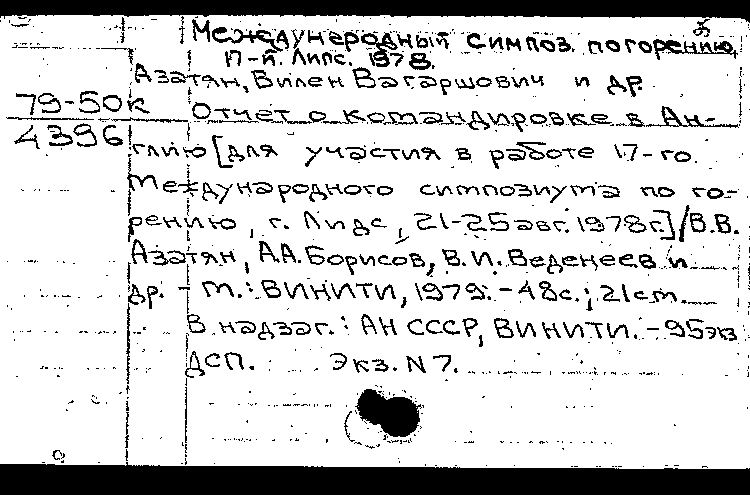 Международный симпоз. по горению,
17-й. Липс. 1978.
Азатян, Вилен Вагаршович и др.
79-50к Отчет о командировке в Ан-
4396 глию [для участия в работе 17-го
Международного симпозиума по го-
рению, г. Лидс, 21-25 авг. 1978г.]/В.В.
Азатян, А.А. Борисов, В.И. Веденеев и
др. - М.: ВИНИТИ, 1979. - 48с.; 21см.
В надзаг.: АН СССР, ВИНИТИ. - 95экз
ДСП. Экз. N 7.